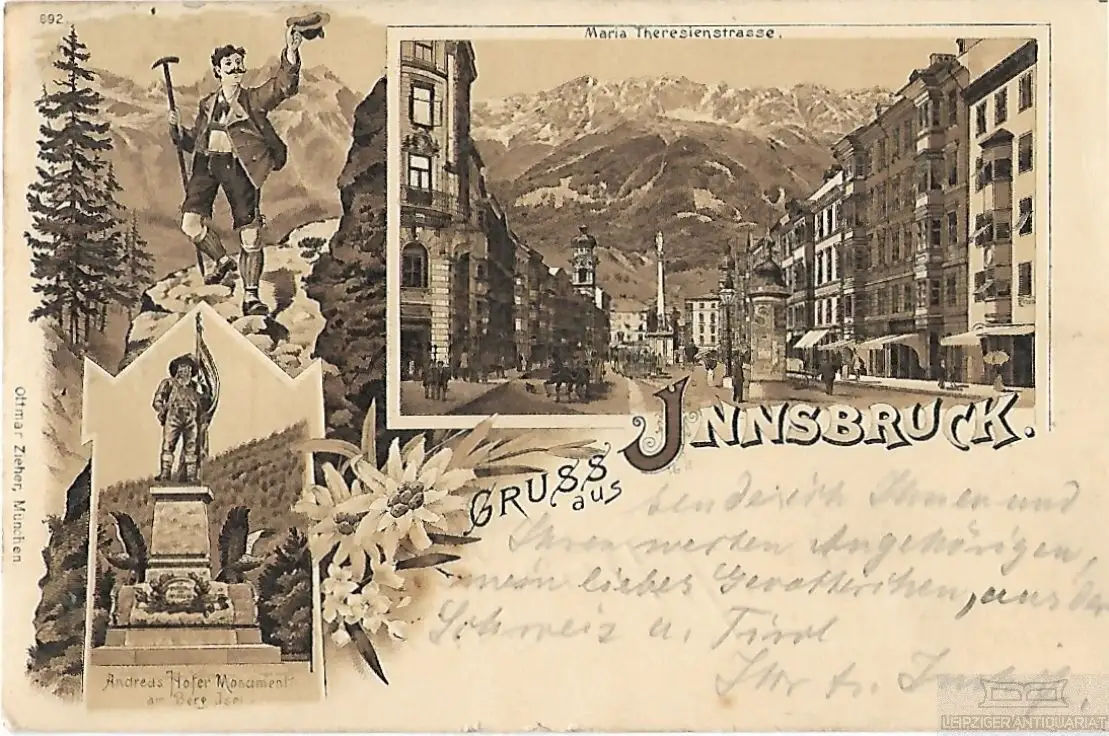 692
Maria Theresienstrasse.
GRUSS
aus
INNSBRUCK.
senden ich Ihnen und
Ihren werten Angehörigen,
mein liebes
aus der
Schweiz u. Tirol
Ihr tr.
Andreas Hofer Monument
am Berg Isel.
Ottmar Zieher, München
LEIPZIGER ANTIQUARIAT